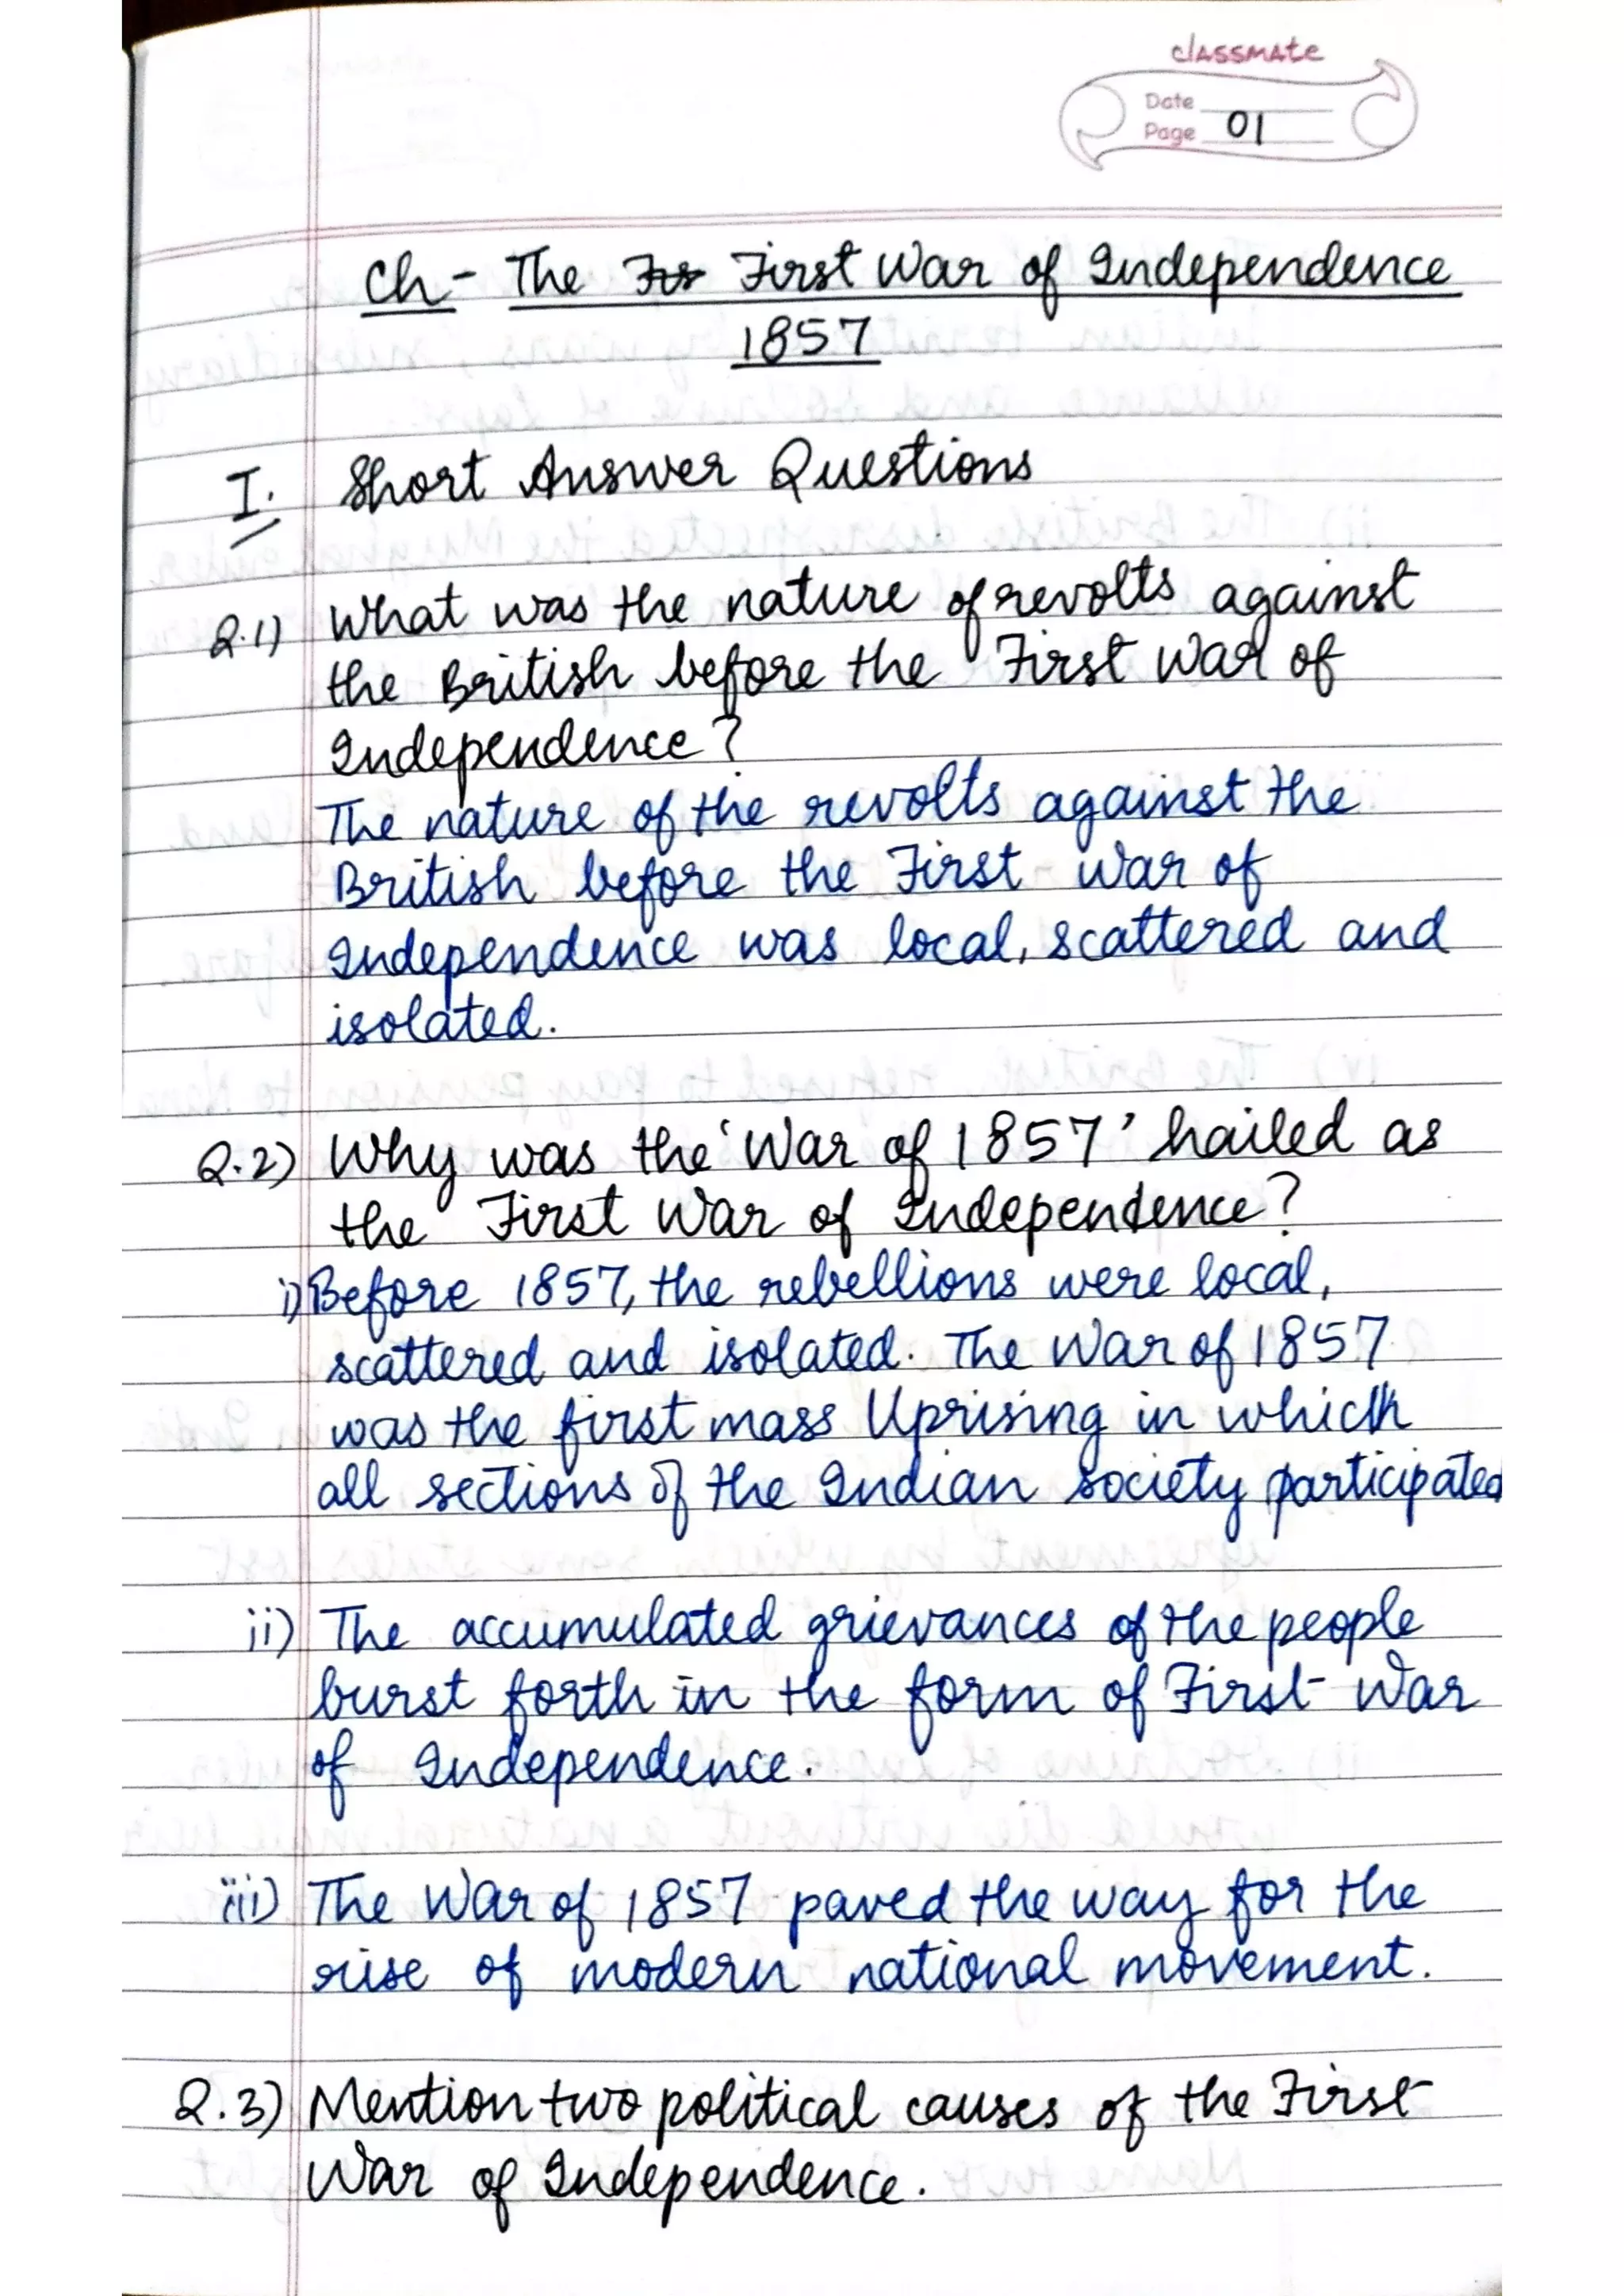 classmate
Date
Page 01
Ch - The First War of Independence
1857
I. Short Answer Questions
Q.1) What was the nature of revolts against
the British before the First War of
Independence?
The nature of the revolts against the
British before the First War of
Independence was local, scattered and
isolated.
Q.2) Why was the 'War of 1857' hailed as
the First War of Independence?
i) Before 1857, the rebellions were local,
scattered and isolated. The War of 1857
was the first mass Uprising in which
all sections of the Indian society participated
ii) The accumulated grievances of the people
burst forth in the form of First War
of Independence.
iii) The War of 1857 paved the way for the
rise of modern national movement.
Q.3) Mention two political causes of the First
War of Independence.